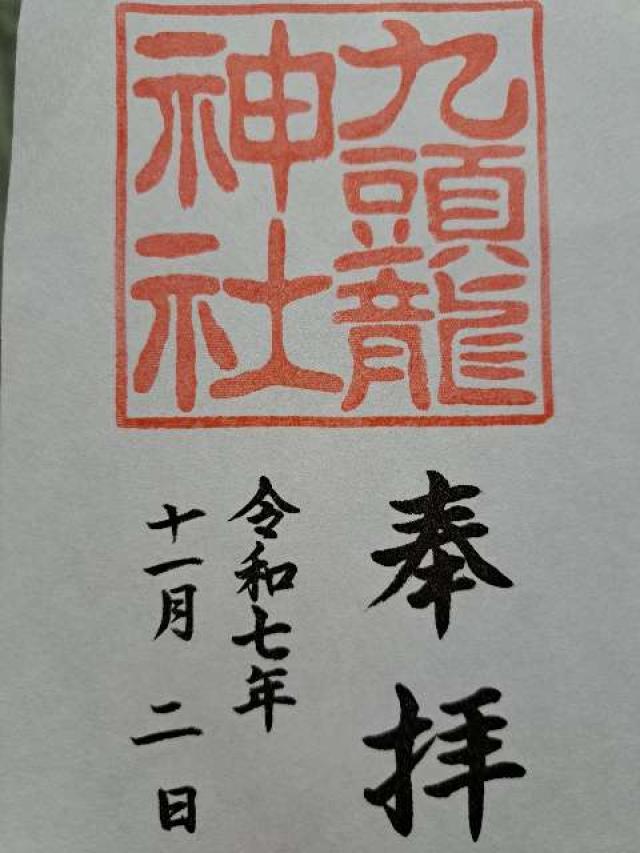 九頭龍
神社
奉拝
令和七年
十一月二日